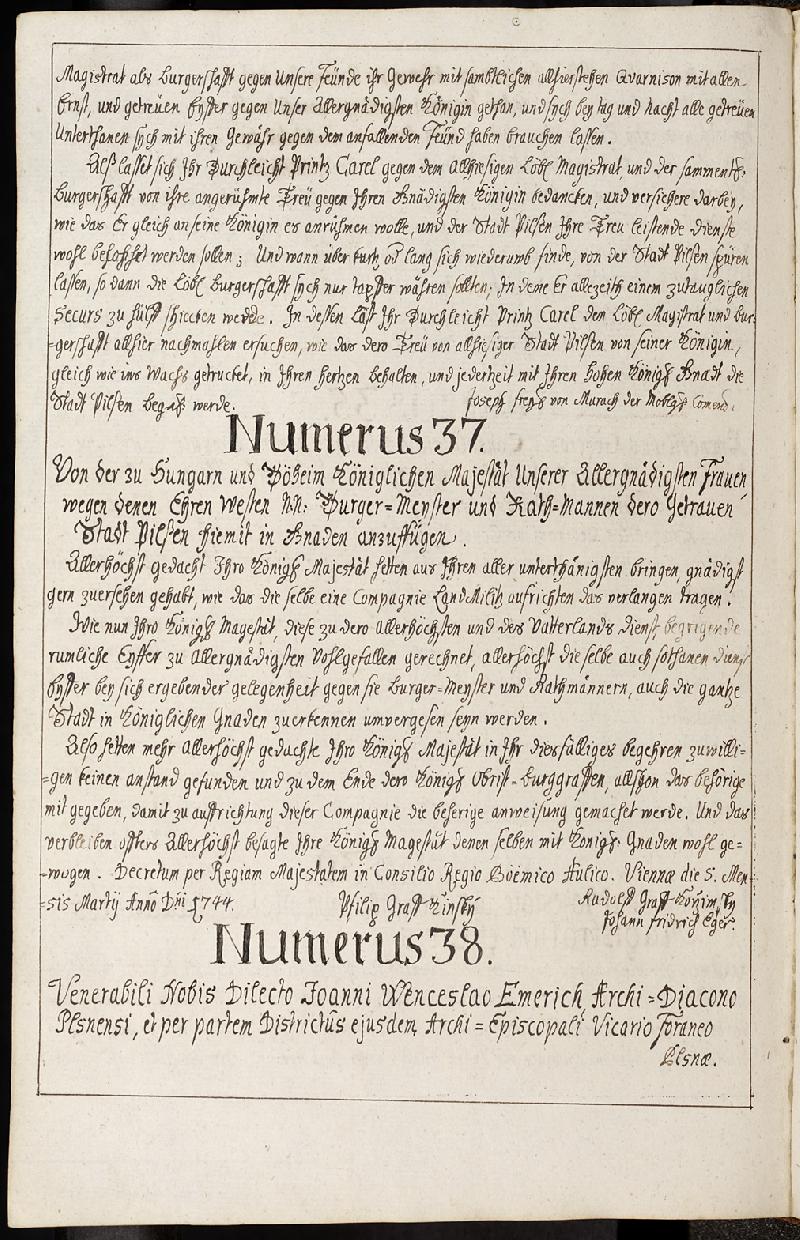 Magistrat als Burgerschafft gegen Unsere Feünde ihr Gewehr mit sambtlichen allhierstehen Gvarnison mit allen
Ernst, und getreüen Eyffer gegen Unser Allergnädigsten Königin gethan, und sych bey tag und nacht alle getreüen
Unterthanen sych mit ihren Gewähr gegen dem anfallenden Feünd haben brauchen lassen.
Als lasset sich Ihr Durchleicht Printz Carel gegen dem allhiesigen Löbl Magistrat, und der samment
Burgerschafft von ihre angerühmte Treü gegen Ihren Gnädigsten Königin bedancken, und versichere darbey,
wie das Er gleich an seine Königin es anrühmen wolle, und der Stadt Pilsen Ihre Treu leistende dienste
wohl belohnet werden sollen; Und wann über kurtz od lang sich wiederumb feinde, von der Stadt Pilsen spüren
lassen, so dann die Löbl Burgerschafft sych nur tapffer währen sollten; In deme Er allezeith einem zutauglichen
Securs zu hülff schiecken werde. In dessen Läst Ihr Durchleicht Printz Carel dem Löbl Magistrat und Bur-
-gerschafft allhier nachmahlen ersuchen, wie das dero Treü von allhiesiger Stadt Pilsen von seiner Königin,
gleich wie ins Wachs getrucket, in Ihren hertzen behalten, und jederzeit mit Ihren hohen Königl Gnadt die
Stadt Pilsen werde. Joseph von Murach der
Numerus 37.
Von der zu Hungarn und Böheim Königlichen Majestät Unserer Allergnädigsten Frauen
wegen denen Ehren Westen N:N: Burger=Meyster und Rath=Mannen dero Getreuen
Stadt Pilsen hiemit in Gnaden anzuffügen.
Allerhöchst gedacht Ihro Königl Majestät hetten aus Ihren aller unterthänigsten bringen, gnädigst
gern zuersehen gehabt, wie das die selbe eine Compagnie LandMilitz aufrichten das verlangen tragen.
Wie nun Ihro Königl Magestät, diese zu dero allerhöchsten und des Vatterlands dienst
rumliche Eyffer zu Allergnädigsten Vohlgefallen gerechnet, allerhöchst die selbe auch sothanen dienst
Eyffer bey sich ergebender gelegenheit gegen sie Burger=Meyster und Rathmännern, auch die gantze
Stadt in Königlichen Gnaden zuerkennen umvergesen seyn werden.
Also hetten mehr allerhöchst gedachte Ihro Königl Majestät in Ihr diesfälliges begehren zuwilli=
=gen keinen anstand gefunden und zu dem Ende dero Königl Obrist=Burggraffen, allschon das behörige
mit gegeben, damit zu auffrichtung dieser Compagnie die beherige anweisung gemachet werde. Und das
verbleiben öffters Allerhöchst besagte Ihre Königl Magestät denen selben mit Königl Gnaden wohl ge=
=wogen. Decretum per Regiam Majestatem in Consilio Regio Boëmico Aulico. Viennæ die 5. Men-
-sis Martij Anno Dni 1744. Philip Graff Kinsky Rudolff Graff
Johann fridrich Eger.
Numerus 38.
Venerabili Nobis Dilecto Joanni Wenceslao Emerich, Archi=Diacono
Plsnensi, et per partem Districtûs ejusdem, Archi=Episcopali Vicario Foraneo
Plsnæ.